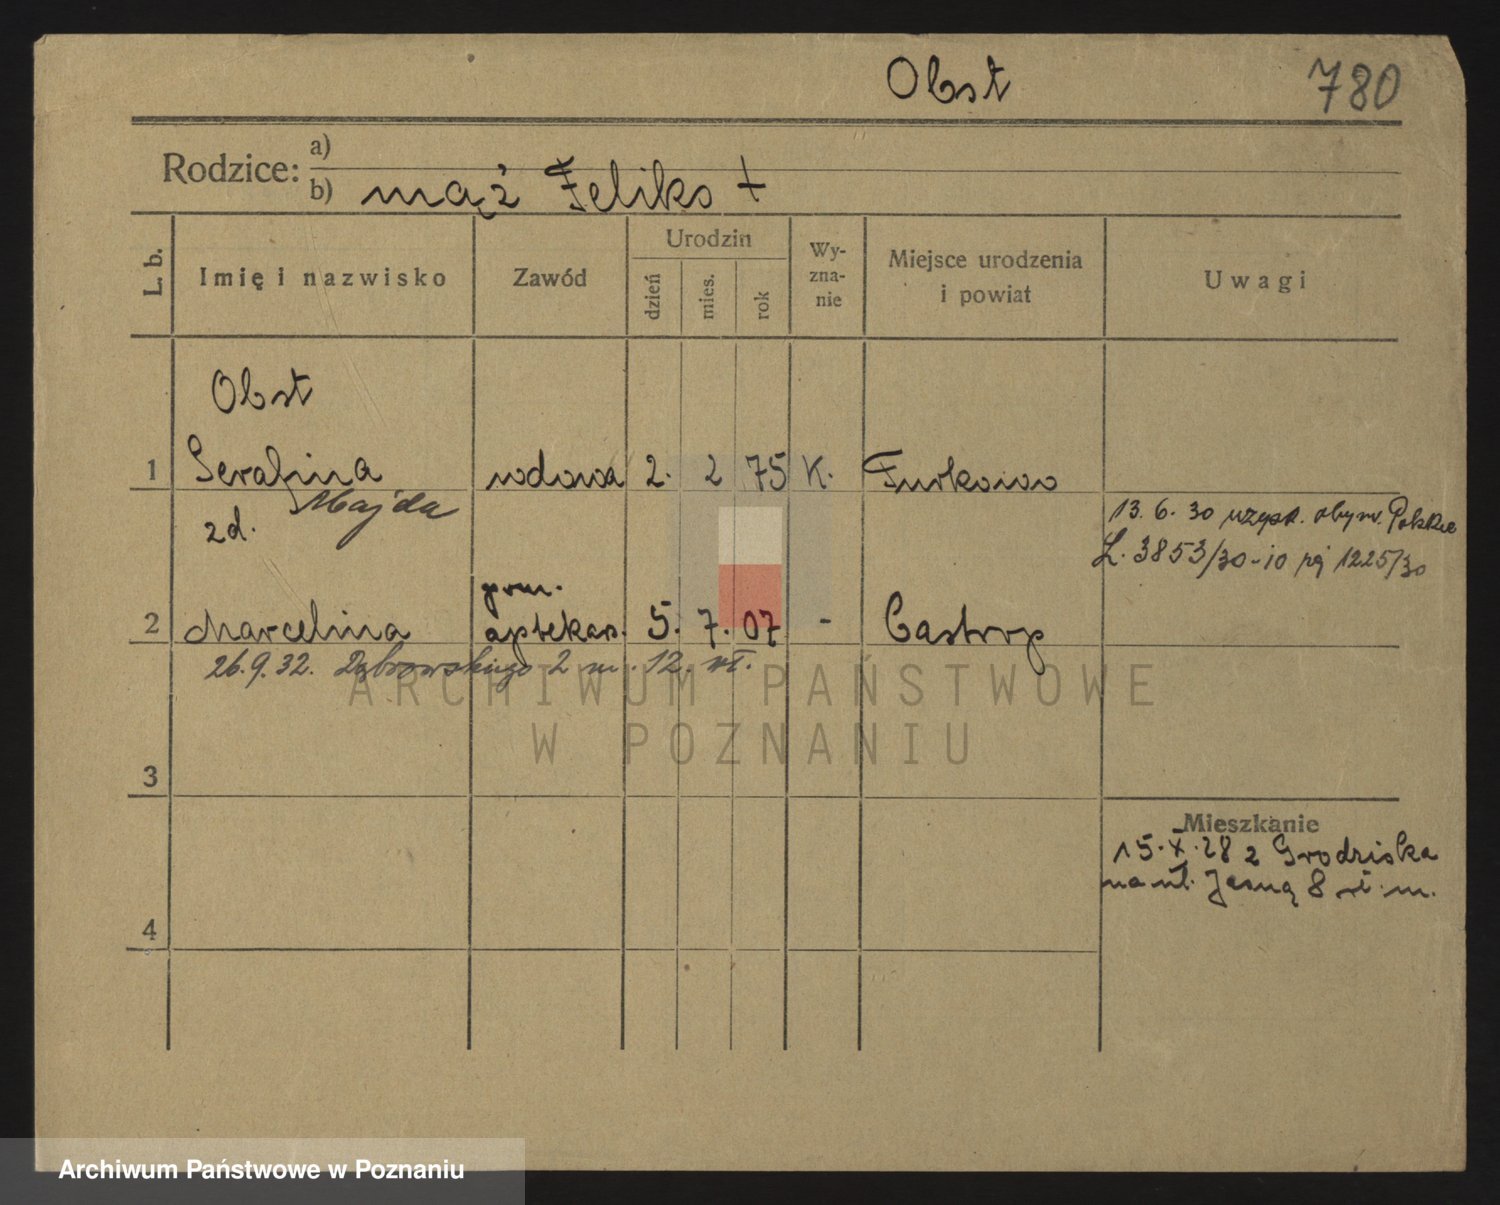 Obst
780
Rodzice: a)
b) mąż Feliks +
L. b.
Imię i nazwisko
Zawód
Urodzin
dzień
mies.
rok
Wy-
zna-
nie
Miejsce urodzenia
i powiat
Uwagi
Obst
1 Serafina wdowa 2. 2 75 K. Turkowo
zd. Majda
13. 6. 30 uzysk. obyw. Polskie
L. 3853/30-10 pj 1225/30
pom.
2 Marcelina aptekar. 5. 7. 07 - Castrop
26.9.32. Dąbrowskiego 2 m. 12. wł.
3
Mieszkanie
15.X.28 z Grodziska
na ul. Jasną 8 wł. m.
4
ARCHIWUM PAŃSTWOWE
W POZNANIU
Archiwum Państwowe w Poznaniu